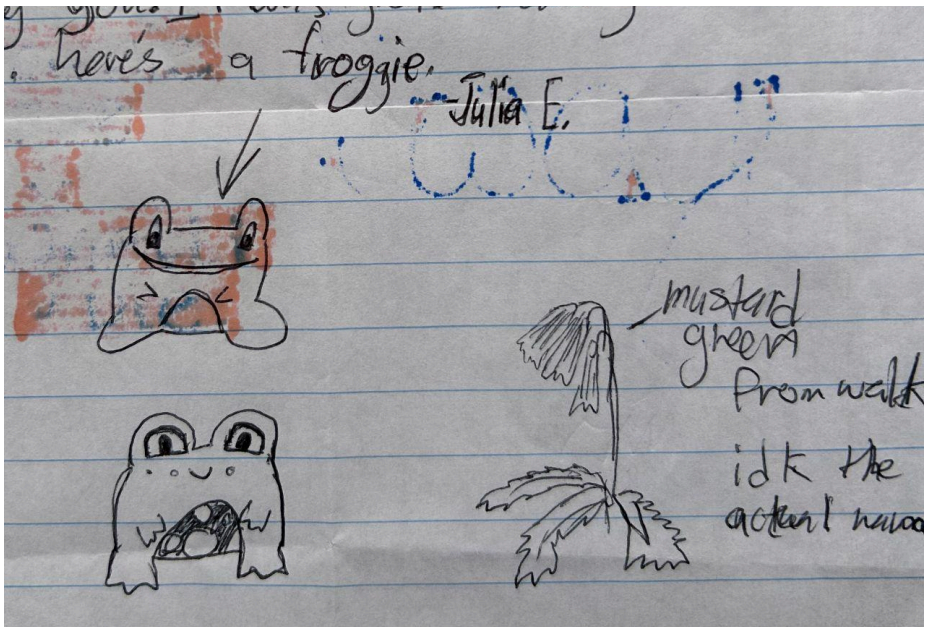 you. I was
. here's a froggie.
-Julia E.
mustard
green
from walk
idk the
actual